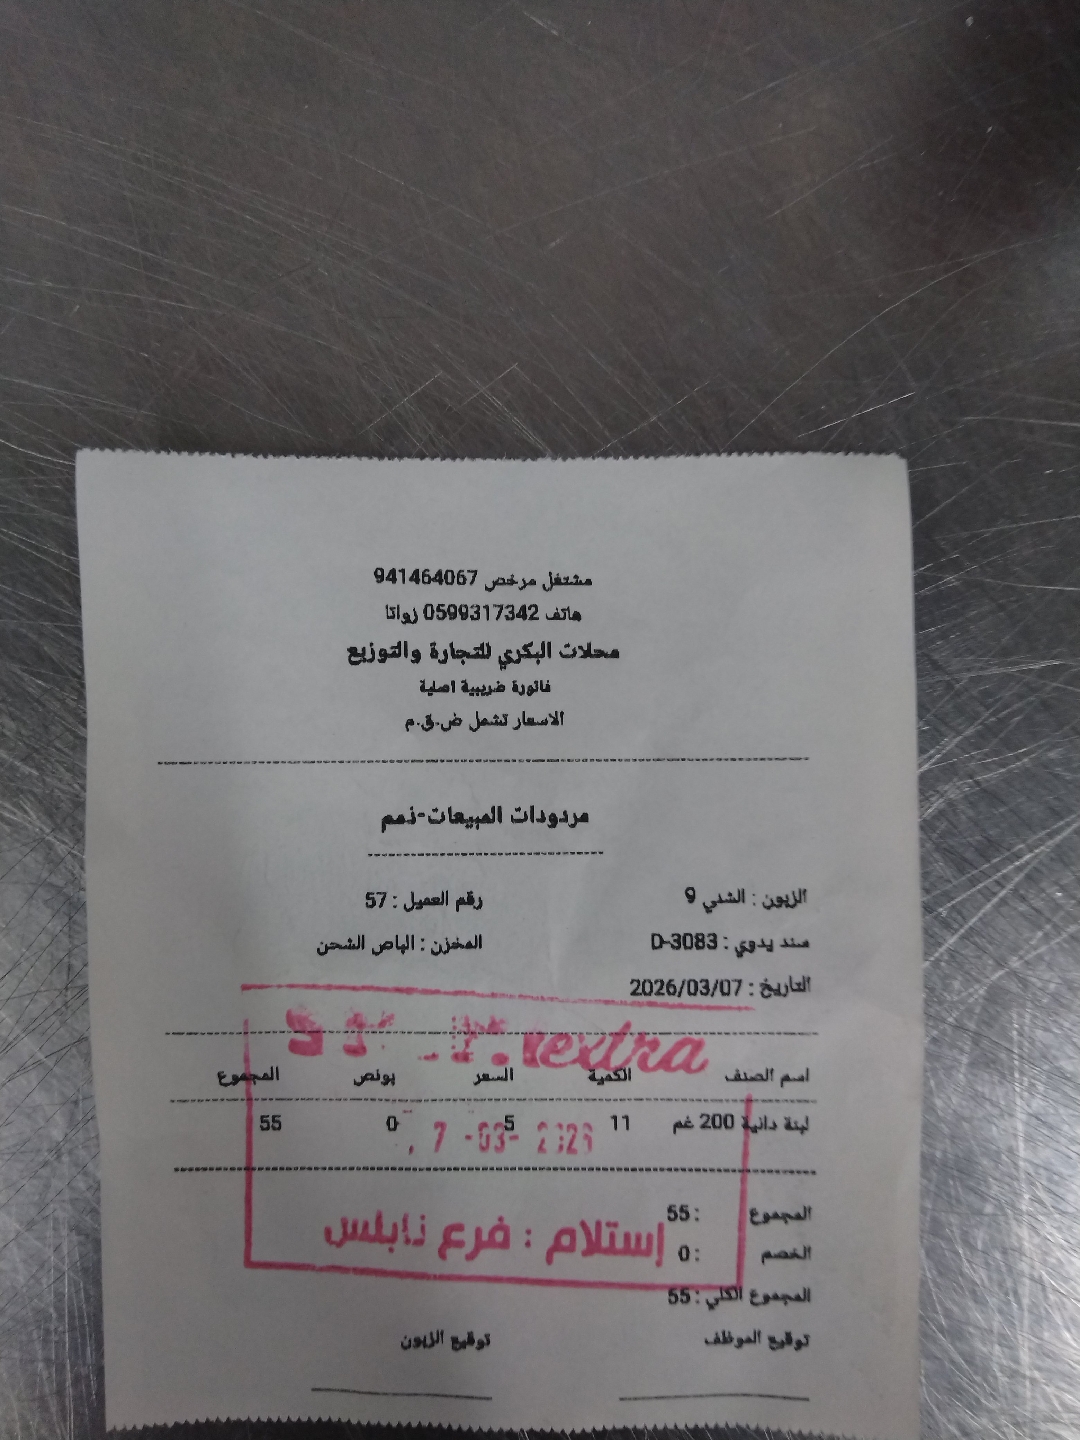 مشتغل مرخص 941464067
هاتف 0599317342 زواتا
محلات البكري للتجارة والتوزيع
فاتورة ضريبية اصلية
الاسعار تشمل ض.ق.م
مردودات المبيعات-ذمم
الزبون : الشني 9 رقم العميل : 57
سند يدوي : D-3083 المخزن : الباص الشحن
التاريخ : 2026/03/07
extra
اسم الصنف الكمية السعر بونص المجموع
لبنة دانية 200 غم 11 5 0 55
7 -03- 2026
المجموع : 55
إستلام : فرع نابلس
الخصم : 0
المجموع الكلي : 55
توقيع الموظف توقيع الزبون